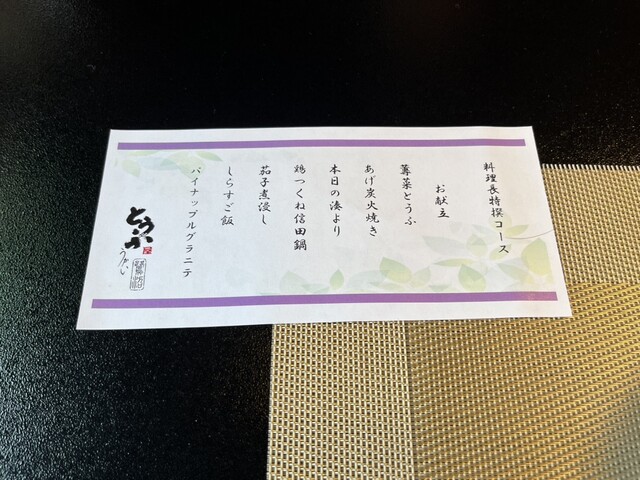 料理長特撰コース
お献立
蓴菜とうふ
あげ炭火焼き
本日の湊より
鶏つくね信田鍋
茄子煮浸し
しらすご飯
パイナップルグラニテ
とうふ
うかい